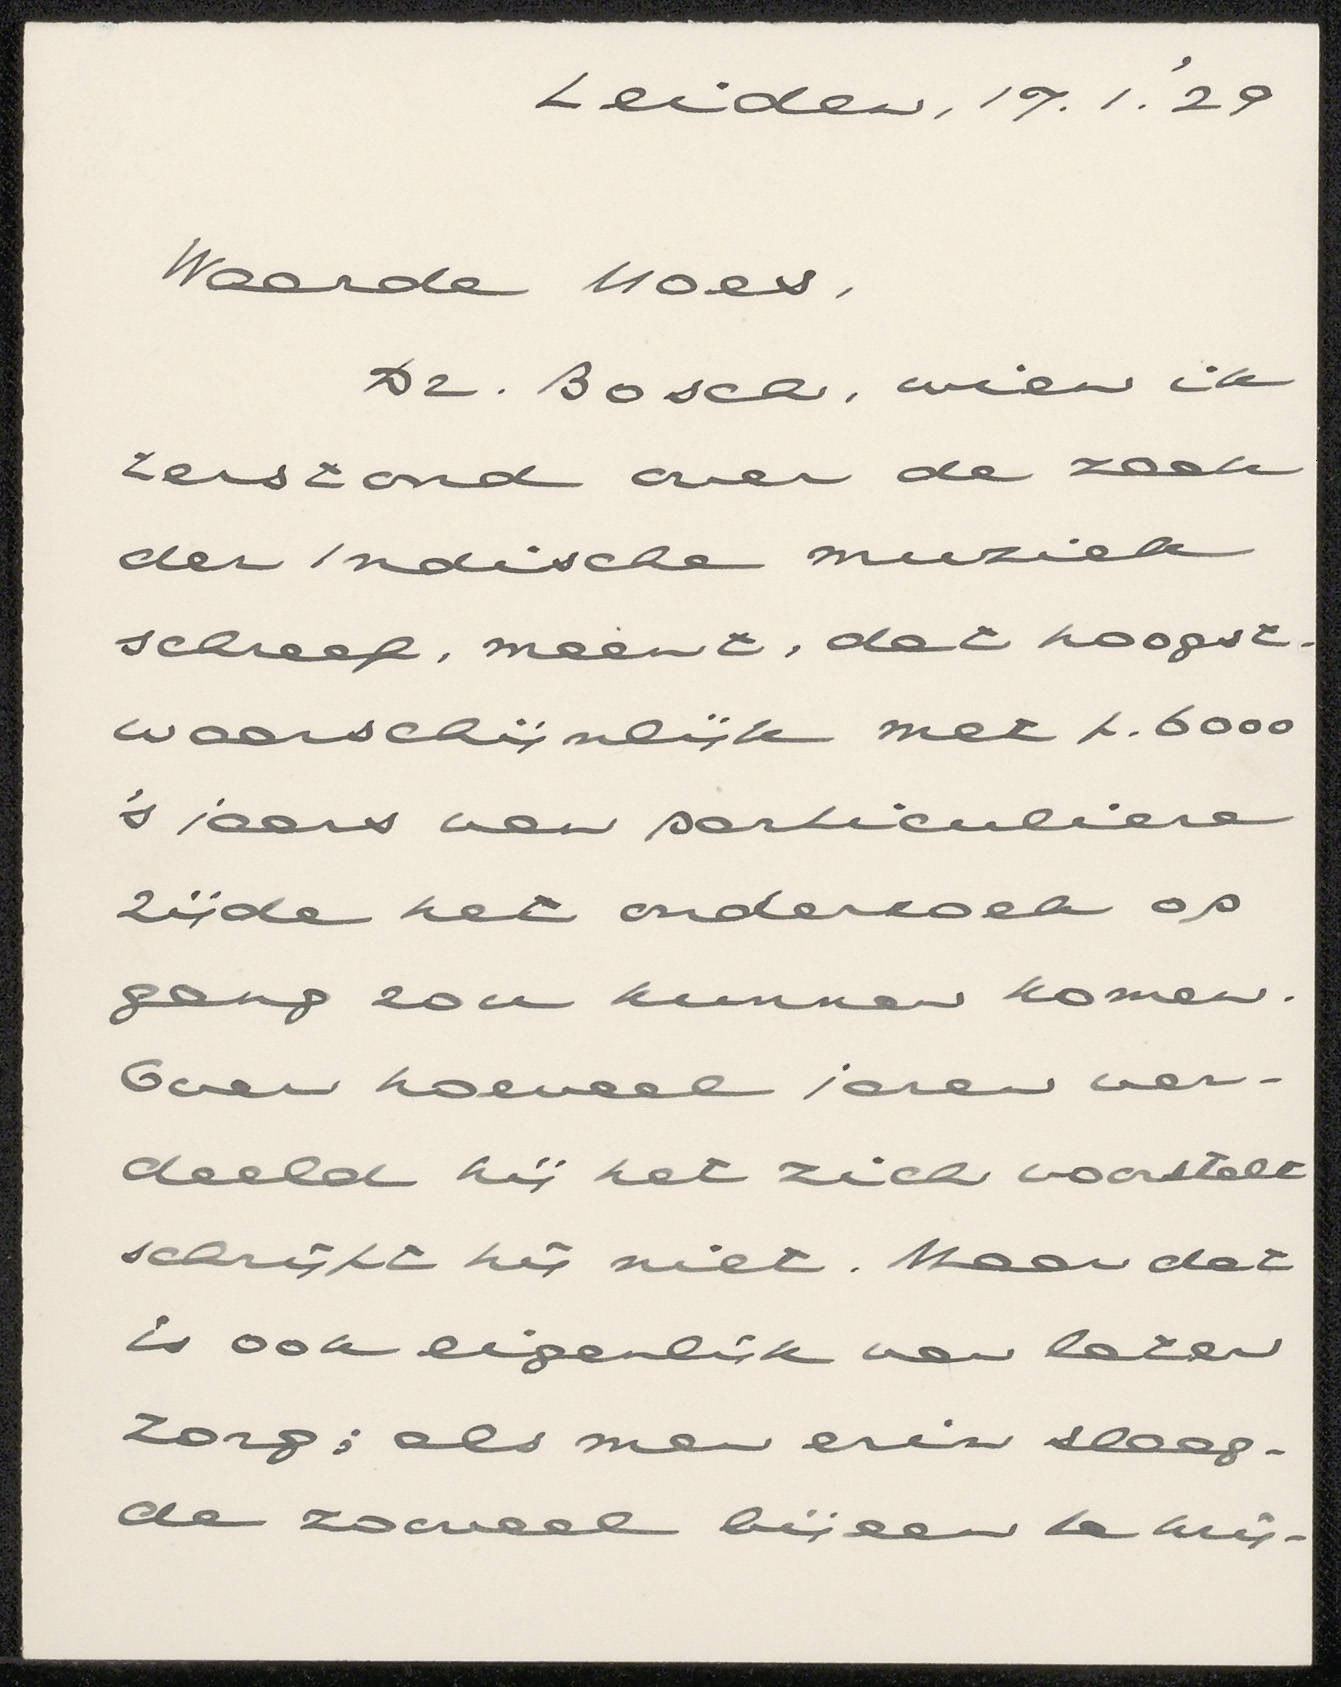 Leiden, 19.1.'29
Waarde Moes,
Dr. Bosch, wien ik
terstond over de zaak
der Indische muziek
schreef, meent, dat hoogst-
waarschijnlijk met f. 6000
's jaars van particuliere
zijde het onderzoek op
gang zou kunnen komen.
Over hoeveel jaren ver-
deeld hij het zich voorstelt
schrijft hij niet. Maar dat
is ook eigenlijk van later
zorg; als men erin slaag-
de zooveel bijeen te krij-